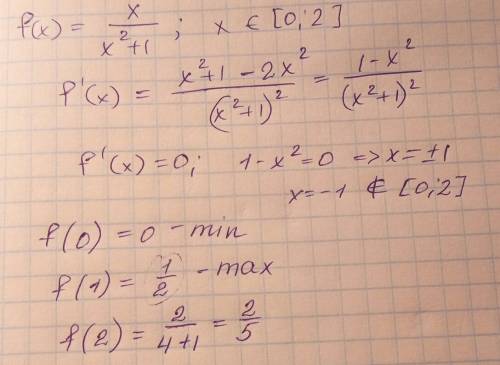 f(x) = x/(x²+1) ; x ∈ [0; 2]
f'(x) = (x²+1 - 2x²)/(x²+1)² = (1 - x²)/(x²+1)²
f'(x) = 0; 1 - x² = 0 => x = ±1
x = -1 ∉ [0; 2]
f(0) = 0 - min
f(1) = 1/2 - max
f(2) = 2/(4+1) = 2/5